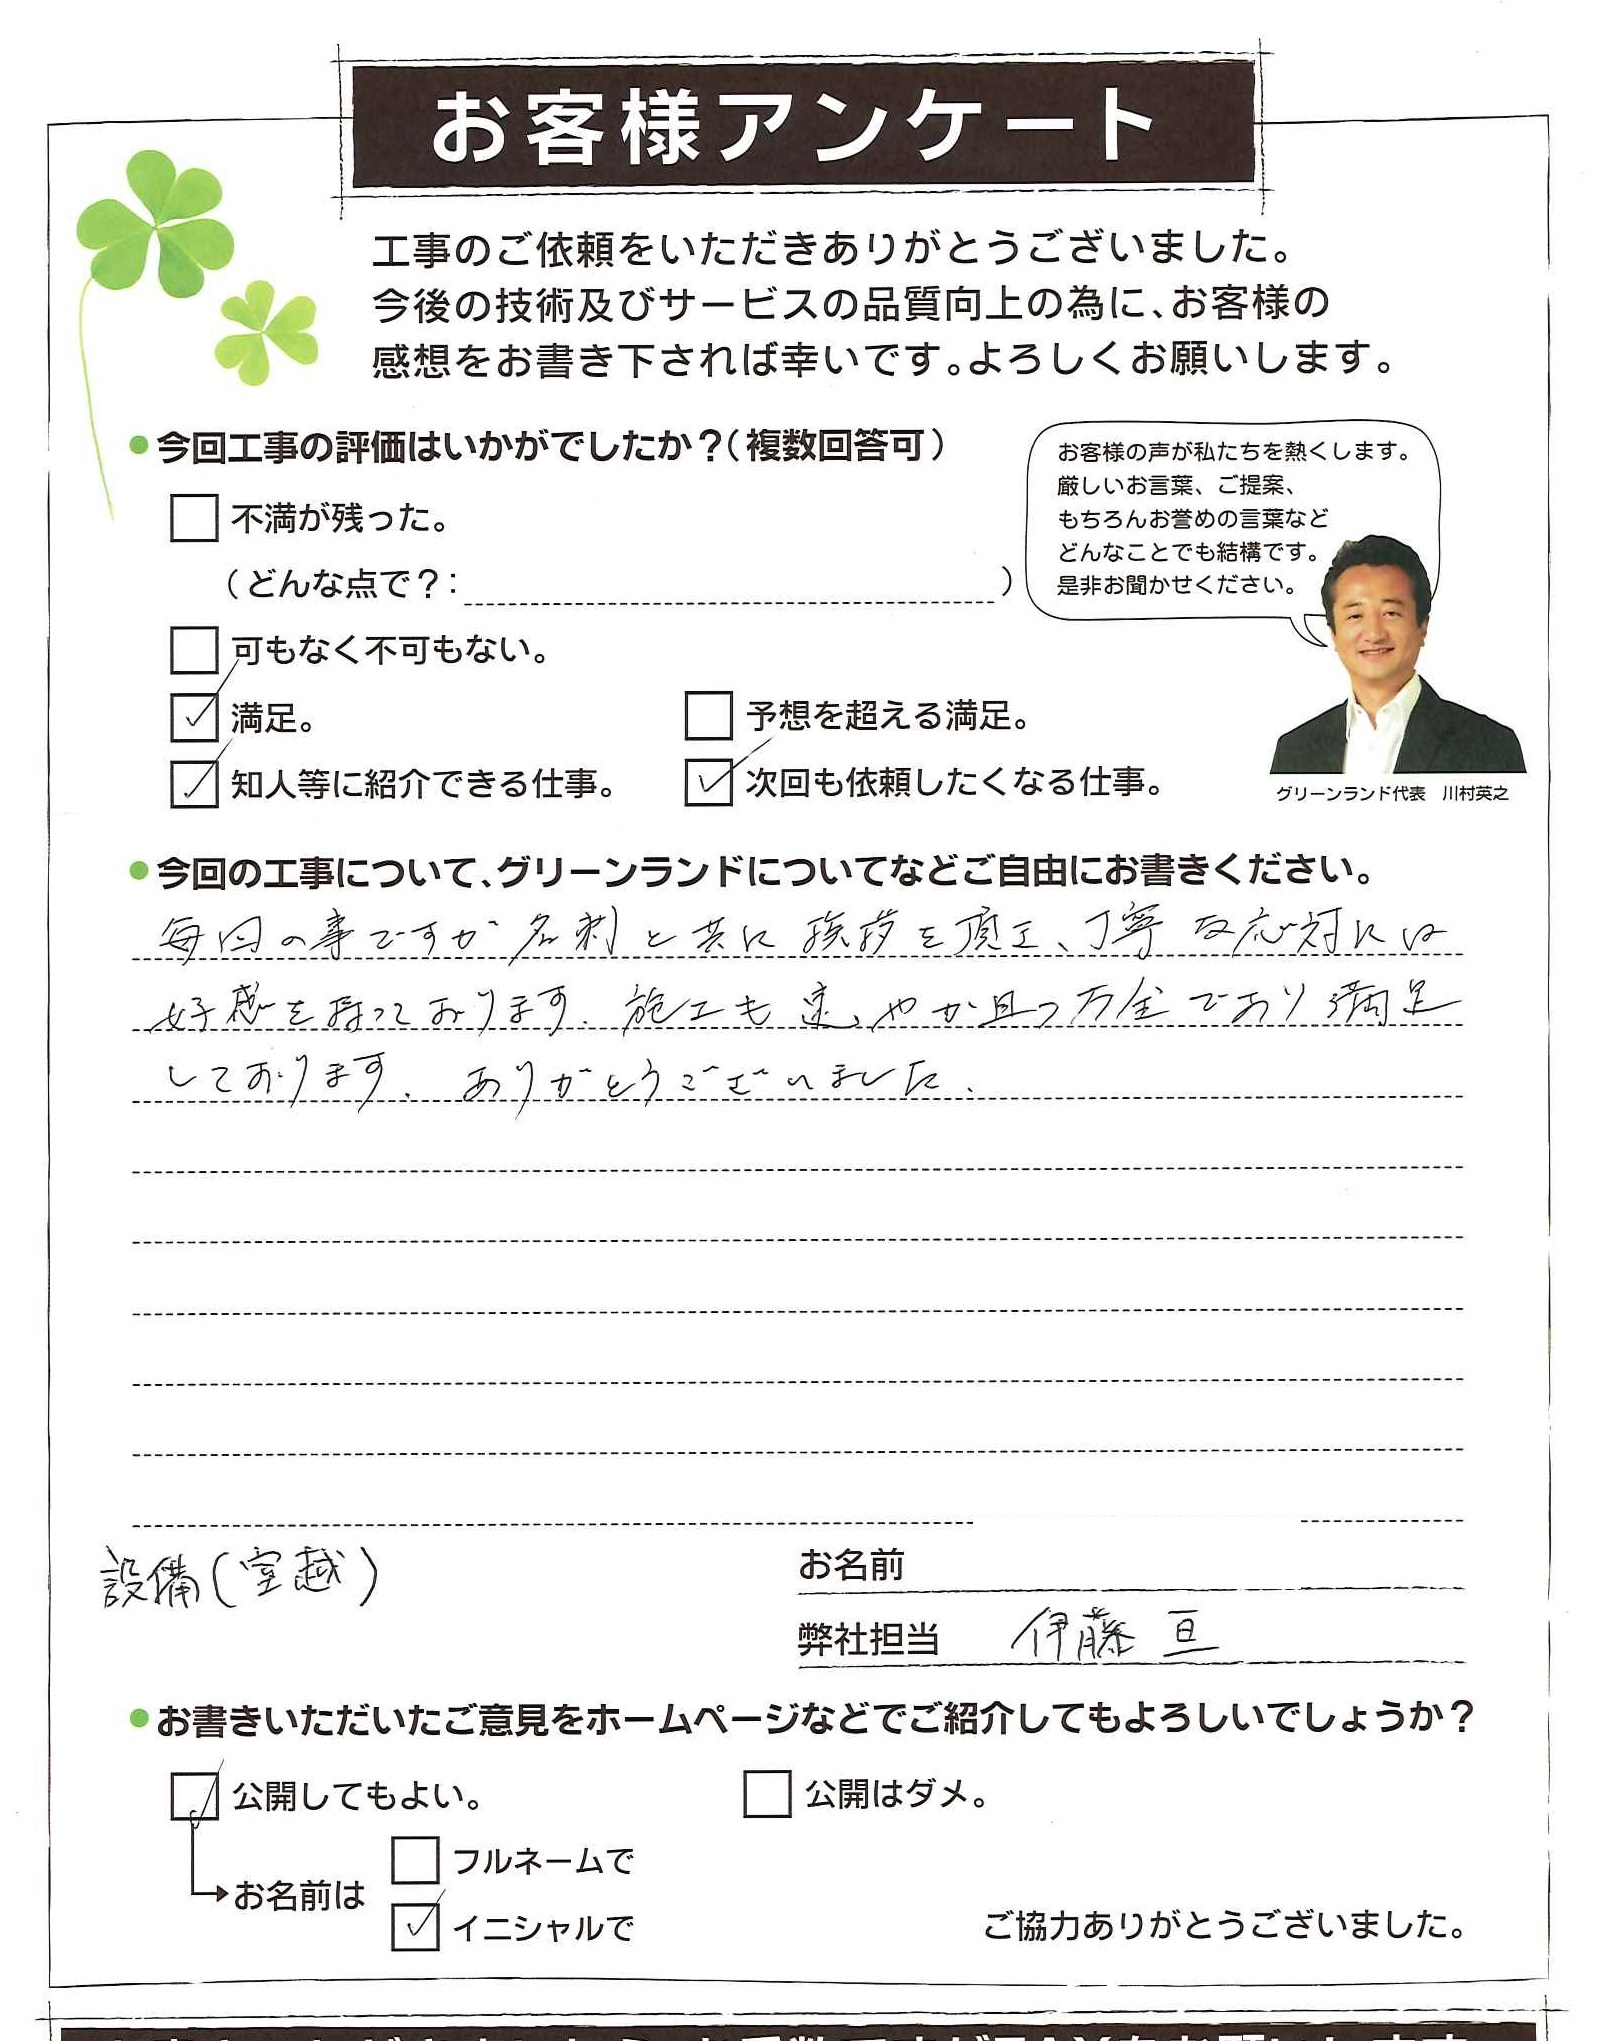 お客様アンケート
工事のご依頼をいただきありがとうございました。
今後の技術及びサービスの品質向上の為に、お客様の
感想をお書き下されば幸いです。よろしくお願いします。
●今回工事の評価はいかがでしたか？（複数回答可）
不満が残った。
（どんな点で？：　）
可もなく不可もない。
満足。
予想を超える満足。
知人等に紹介できる仕事。
次回も依頼したくなる仕事。
お客様の声が私たちを熱くします。
厳しいお言葉、ご提案、
もちろんお誉めの言葉など
どんなことでも結構です。
是非お聞かせください。
グリーンランド代表　川村英之
●今回の工事について、グリーンランドについてなどご自由にお書きください。
毎回の事ですが名刺と共に挨拶を頂き、丁寧な応対には
好感を持っております。施工も速やか且つ万全であり満足
しております。ありがとうございました。
設備(室越)
お名前
弊社担当　伊藤 亘
●お書きいただいたご意見をホームページなどでご紹介してもよろしいでしょうか？
公開してもよい。
公開はダメ。
お名前は
フルネームで
イニシャルで
ご協力ありがとうございました。